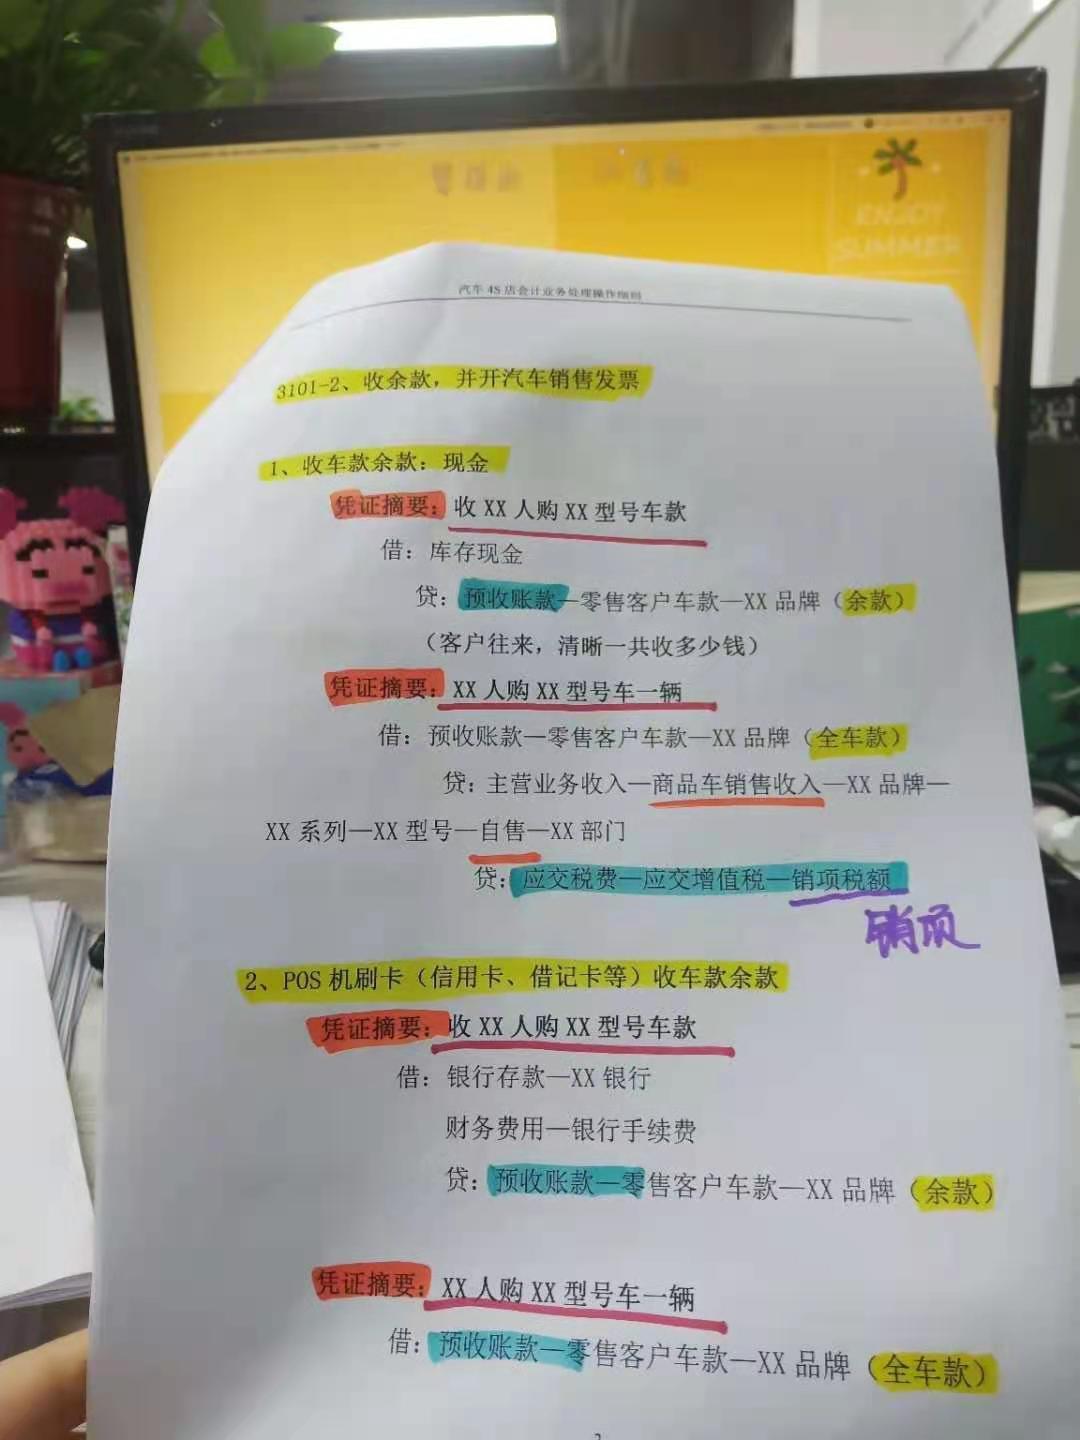 ENJOY
SUMMER
汽车 4S 店会计业务处理操作细则
3101-2、收余款，并开汽车销售发票
1、收车款余款：现金
凭证摘要：收 XX 人购 XX 型号车款
借：库存现金
贷：预收账款—零售客户车款—XX 品牌（余款）
（客户往来，清晰一共收多少钱）
凭证摘要：XX 人购 XX 型号车一辆
借：预收账款—零售客户车款—XX 品牌（全车款）
贷：主营业务收入—商品车销售收入—XX 品牌—
XX 系列—XX 型号—自售—XX 部门
贷：应交税费—应交增值税—销项税额
销项
2、POS 机刷卡（信用卡、借记卡等）收车款余款
凭证摘要：收 XX 人购 XX 型号车款
借：银行存款—XX 银行
财务费用—银行手续费
贷：预收账款—零售客户车款—XX 品牌（余款）
凭证摘要：XX 人购 XX 型号车一辆
借：预收账款—零售客户车款—XX 品牌（全车款）